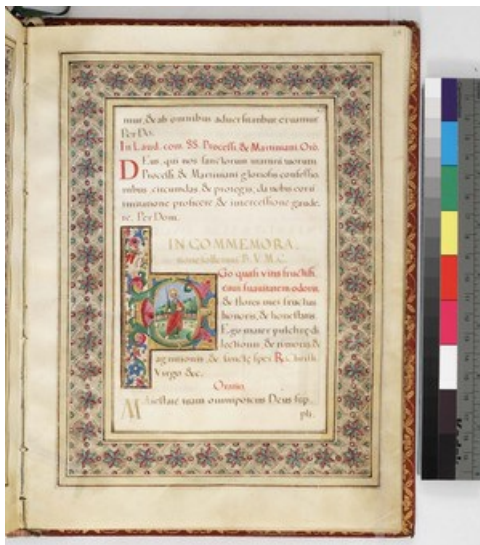 mur, & ab omnibus adversitatibus eruamur
Per Do.
In Laud. com. SS. Processi, & Martiniani. Orō.
DEus, qui nos sanctorum martirū tuorum
Processi, & Martiniani gloriosis confessio
nibus circumdas, & protegis, da nobis eorū
imitatione proficere, & intercessione gaude
re. Per Dom.
IN COMMEMORA.
B. V. M. C.
EGo quasi vitis fructifi
cavi suavitatem odoris,
& flores mei fructus
honoris, & honestatis.
Ego mater pulchrę di
lectionis, & timoris, &
agnitionis, & sanctę spei. R. Christi
Virgo &c.
Oratio.
Maiestatē tuam omnipotens Deus sup.
pli.